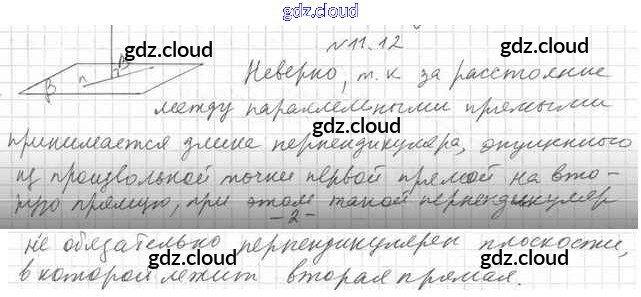 gdz.cloud
gdz.cloud gdz.cloud
N 11.12
β n B
Неверно, т.к за расстояние
gdz.cloud
между параллельными прямыми
принимается длина перпендикуляра, опущенного
gdz.cloud
из произвольной точки первой прямой на вто-
рую прямую, при этом такой перпендикуляр
gdz.cloud gdz.cloud
-2-
не обязательно перпендикулярен плоскости,
gdz.cloud gdz.cloud
в которой лежит вторая прямая.